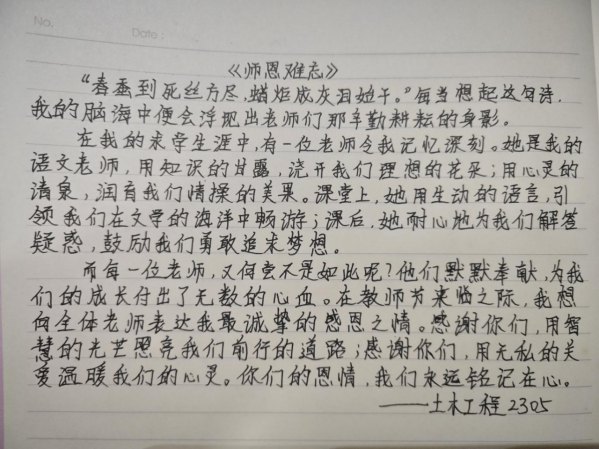 No.
Date:
《师恩难忘》
“春蚕到死丝方尽,蜡炬成灰泪始干。”每当想起这句诗,
我的脑海中便会浮现出老师们那辛勤耕耘的身影。
在我的求学生涯中,有一位老师令我记忆深刻。她是我的
语文老师,用知识的甘露,浇开我们理想的花朵;用心灵的
清泉,润育我们情操的美果。课堂上,她用生动的语言,引
领我们在文学的海洋中畅游;课后,她耐心地为我们解答
疑惑,鼓励我们勇敢追求梦想。
而每一位老师,又何尝不是如此呢?他们默默奉献,为我
们的成长付出了无数的心血。在教师节来临之际,我想
向全体老师表达我最诚挚的感恩之情。感谢你们,用智
慧的光芒照亮我们前行的道路;感谢你们,用无私的关
爱温暖我们的心灵。你们的恩情,我们永远铭记在心。
——土木工程2305